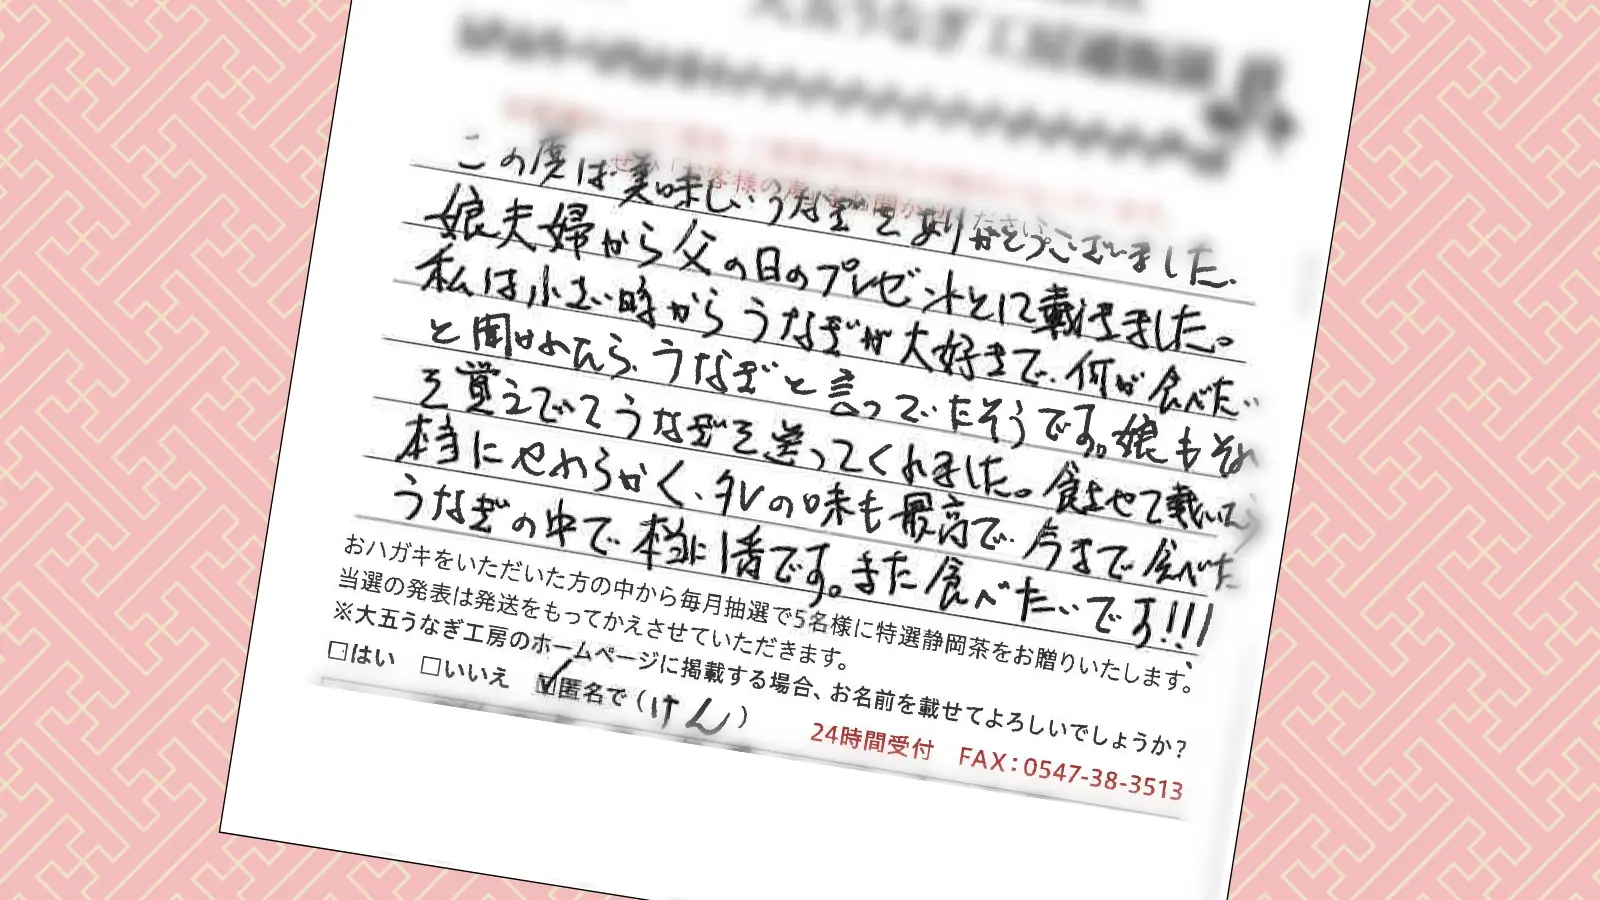 大五うなぎ工房
ぜひ「お客様の声」をお聞かせください
この度は美味しいうなぎをありがとうございました。
娘夫婦から父の日のプレゼントとして戴きました。
私は小さい時からうなぎが大好きで、何が食べたい
と聞かれたら、うなぎと言っていたそうです。娘もそれ
を覚えていてうなぎを送ってくれました。食べさせて戴いたら
本当にやわらかく、タレの味も最高で、今まで食べた
うなぎの中で本当に1番です。また食べたいです!!!
おハガキをいただいた方の中から毎月抽選で5名様に特選静岡茶をお贈りいたします。
当選の発表は発送をもってかえさせていただきます。
※大五うなぎ工房のホームページに掲載する場合、お名前を載せてよろしいでしょうか?
□はい □いいえ ☑匿名で(けん)
24時間受付 FAX:0547-38-3513